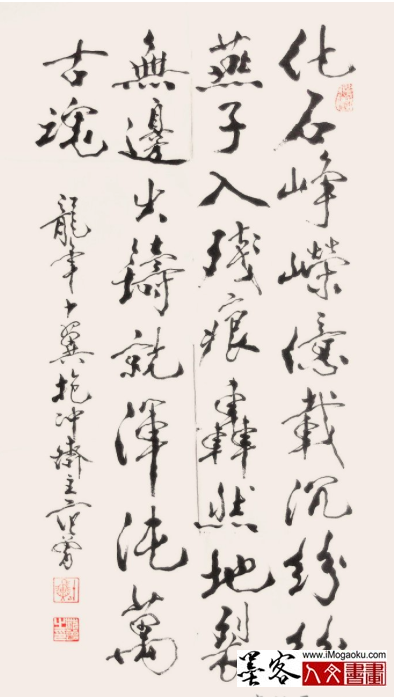 化石崢嶸億載沉紛紛
燕子入殘痕轟然地裂
無邊火鑄就渾沌萬
古魂
龍年十翼抱冲齋主范曾
www.iMogaoku.com
墨客人文書畫